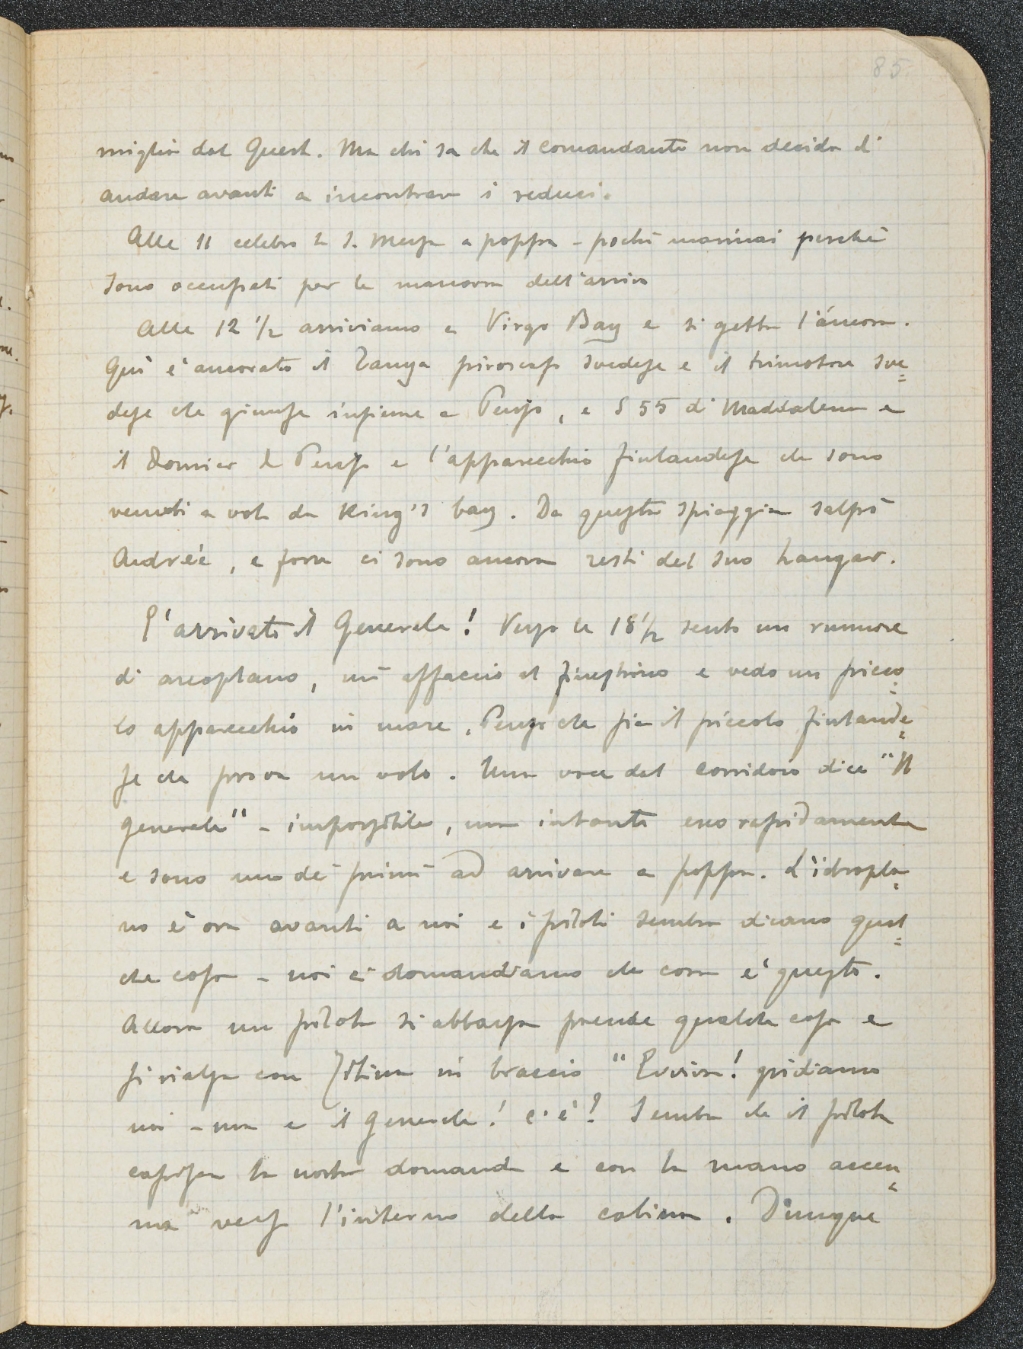 85
miglia dal Quest. Ma chi sa che il comandante non decida di
andare avanti a incontrare i reduci.
Alle 11 celebro la S. Messa a poppa - pochi marinai perchè
sono occupati per la manovra dell'arrivo
Alle 12 1/2 arriviamo a Virgo Bay e si getta l'áncora.
Qui è ancorato il Tanya piroscafo svedese e il trimotore sve=
dese che giunse insieme a Penzo, e S 55 di Maddalena e
il Dornier di Penzo e l'apparecchio finlandese che sono
venuti a volo da King's bay. Da questa spiaggia salpò
Andrée, e forse ci sono ancora resti del suo hangar.
E' arrivato il Generale! Verso le 18 1/2 sento un rumore
di areoplano, mi affaccio al finestrino e vedo un picco=
lo apparecchio in mare. Penso che sia il piccolo finlande=
se che prova un volo. Una voce dal corridoio dice "Il
generale" - impossibile, ma intanto esco rapidamente
e sono uno dei primi ad arrivare a poppa. L'idropla=
no è ora avanti a noi e i piloti sembra dicano qual=
che cosa - noi ci domandiamo che cosa è questo.
Allora un pilota si abbassa prende qualche cosa e
si rialza con Titina in braccio "Evviva! gridiamo
noi - ma e il generale! c'è? Sembra che il pilota
capisse la nostra domanda e con la mano accen=
na verso l'interno della cabina. Dunque